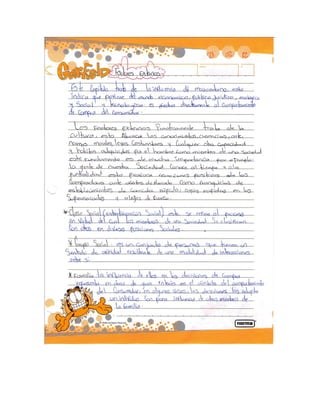 Garfield Factores Externos
Este Capitulo trata de la influencia del macroentorno esto
Indica que proviene del mundo economico, politico, juridico, ecologico
y Social y tecnologico es
de Compra del consumidor.
Los Factores Externos Fundamentales trata de la
Cultura: esto Abarca los conocimientos, creencias, arte,
normas morales, leyes, Costumbres y Cualquier otra capacidad
y habitos adquiridos por el hombre como miembro de una Sociedad
este es de mucha importancia por ejemplo:
la gente de nuestra Sociedad Concede al tiempo y a la
puntualidad esto provoca reacciones positivas de los
Compradores ante ofertas de mercado Como franquicias de
establecimientos de Comidas rapidas, cajas rapidas en los
Supermercados y relojes de
Clase Social (estratificacion Social) esto se refiere al proceso
en Virtud del Cual los miembros de una Sociedad Se clasifican
Con otros en diversas posiciones Sociales.
Grupo Social es un conjunto de personas que tienen un
Sentido de afinidad resultante de una modalidad de interacciones
entre si.
Familia la influencia de ellos en las decisiones de Compra
representa un area de gran interes en el ambito del comportamiento
del Consumidor, en algunos casos, las decisiones las adopta
un individuo Con poca influencia de otros miembros de
la familia